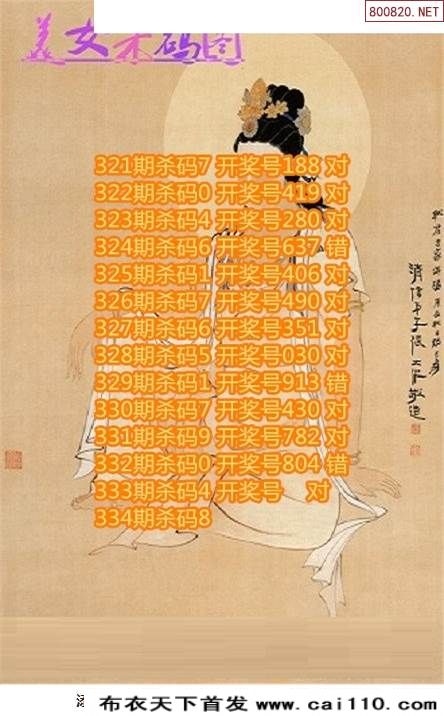 800820.NET
美女杀码图
321期杀码7 开奖号188 对
322期杀码0 开奖号419 对
323期杀码4 开奖号280 对
324期杀码6 开奖号637 错
325期杀码1 开奖号406 对
326期杀码7 开奖号490 对
327期杀码6 开奖号351 对
328期杀码5 开奖号030 对
329期杀码1 开奖号913 错
330期杀码7 开奖号430 对
331期杀码9 开奖号782 对
332期杀码0 开奖号804 错
333期杀码4 开奖号 对
334期杀码8
布衣天下首发 www.cai110.com